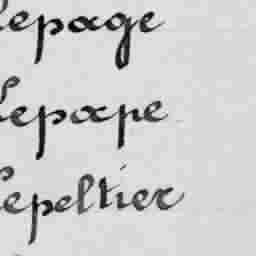 Lepage
Lepape
Lepeltier